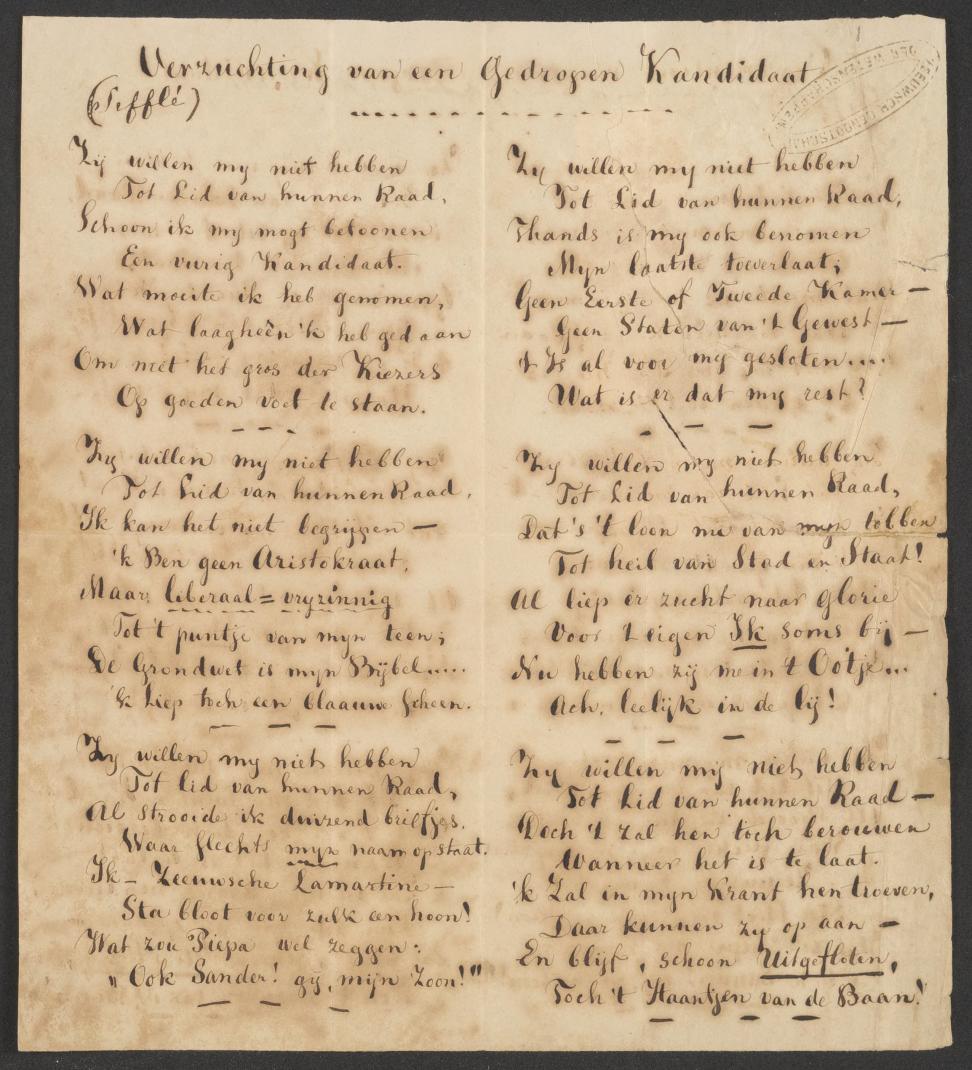 Verzuchting van een Gedropen Kandidaat
(Tefflé)
Zij willen my niet hebben
Tot Lid van hunnen Raad,
Schoon ik my mogt betoonen
Een vurig Kandidaat.
Wat moeite ik heb genomen,
Wat laagheên 'k heb gedaan
Om met het gros der Kiezers
Op goeden voet te staan.
Zy willen my niet hebben
Tot Lid van hunnen Raad,
Ik kan het niet begrijpen —
'k Ben geen Aristokraat,
Maar liberaal = vryzinnig
Tot 't puntje van myn teen;
De Grondwet is myn Bijbel....
'k Liep toch een blaauwe scheen.
Zy willen my niet hebben
Tot lid van hunnen Raad,
Al strooide ik duizend briefjes,
Waar slechts myn naam op staat.
Ik — Zeeuwsche Lamartine —
Sta bloot voor zulk een hoon!
Wat zou Piepa wel zeggen:
„Ook Sander! gij, mijn Zoon!"
Zy willen my niet hebben
Tot Lid van hunnen Raad,
Thands is my ook benomen
Myn laatste toeverlaat;
Geen Eerste of Tweede Kamer —
Geen Staten van 't Gewest —
't Is al voor my gesloten....
Wat is er dat my rest?
Zy willen my niet hebben
Tot Lid van hunnen Raad,
Dat's 't loon nu van myn tobben
Tot heil van Stad en Staat!
Al liep er zucht naar glorie
Voor 't eigen Ik soms bij —
Nu hebben zij me in 't Ootje...
Ach, leelijk in de lij!
Zy willen mij niet hebben
Tot Lid van hunnen Raad —
Doch 't zal hen toch berouwen
Wanneer het is te laat.
'k Zal in myn Krant hen troeven,
Daar kunnen zy op aan —
En blijf, schoon Uitgefloten,
Toch 't Haantjen van de Baan!
ZEEUWSCH GENOOTSCHAP
DER WETENSCHAPPEN